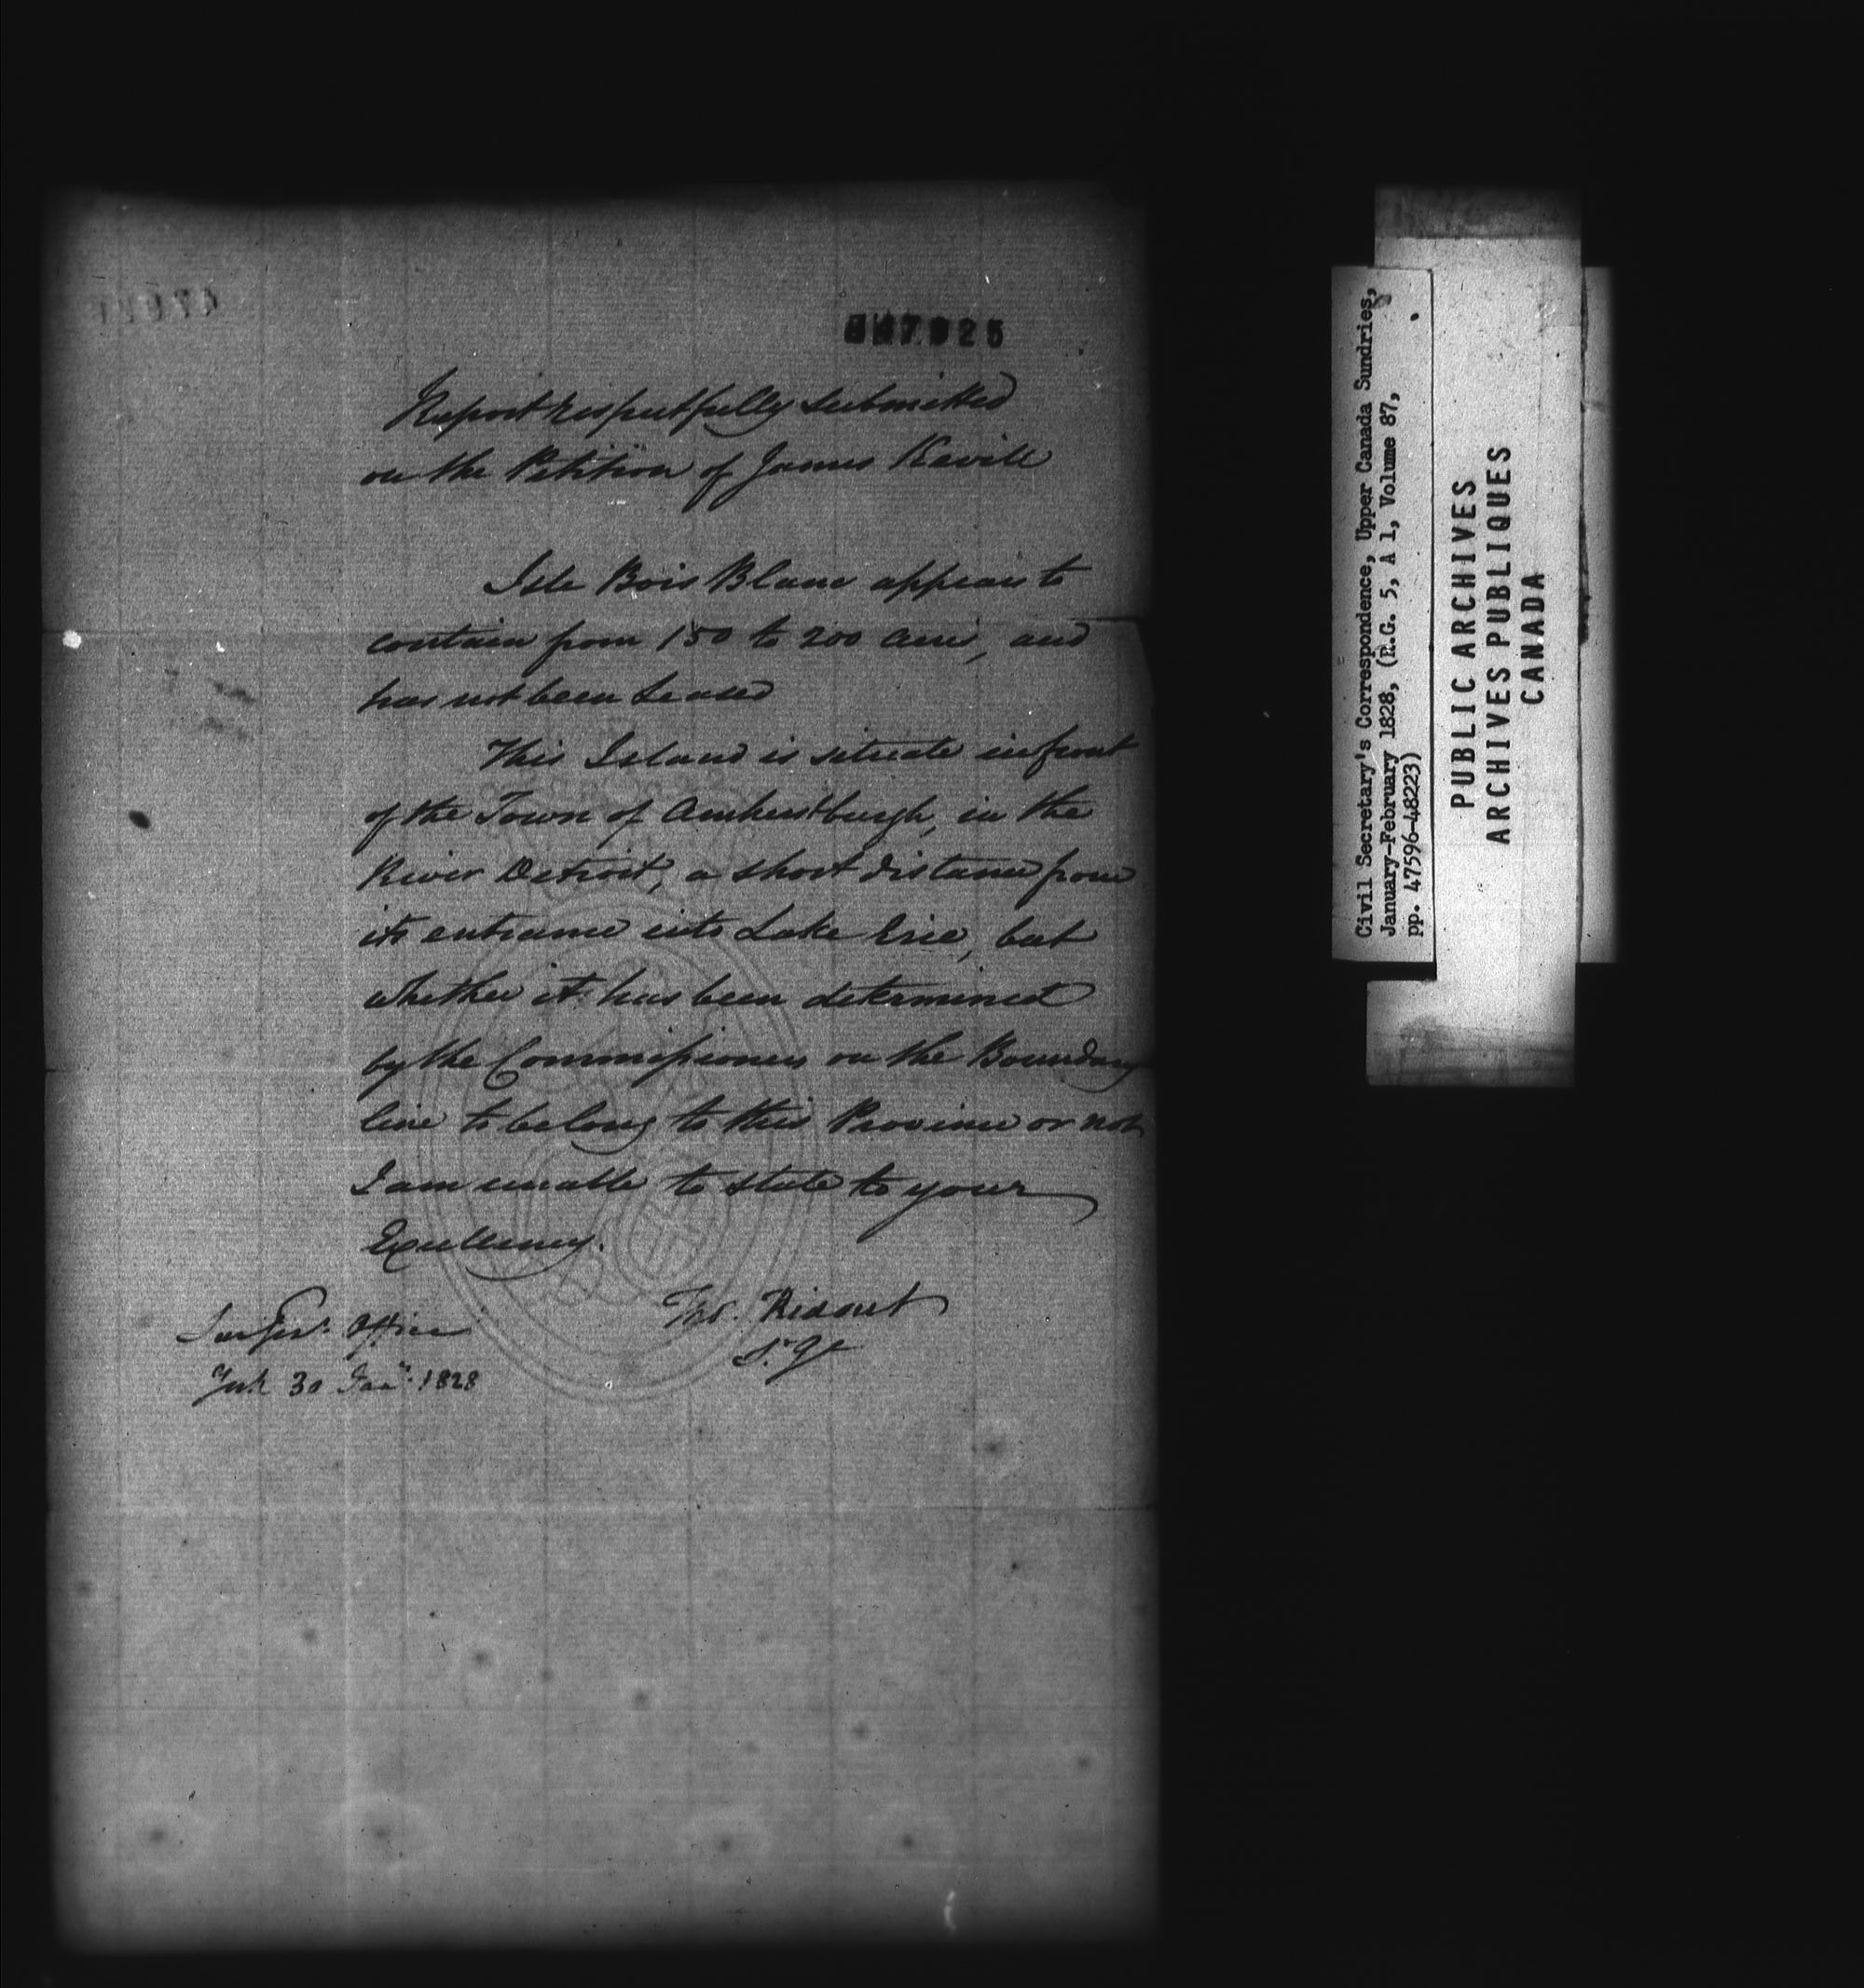 47925
Report respectfully submitted
on the Petition of James Kevill
Isle Bois Blanc appears to
contain from 150 to 200 acres, and
has not been Leased
This Island is situate in front
of the Town of Amherstburgh, in the
River Detroit, a short distance from
its entrance into Lake Erie, but
whether it has been determined
by the Commissioners on the Boundary
line to belong to this Province or not
I am unable to state to your
Excellency.
Tho. Ridout
S. Gl
Sur Genl. Office
York 30 Jany. 1828
Civil Secretary's Correspondence, Upper Canada Sundries,
January-February 1828, (R.G. 5, A 1, Volume 87,
pp. 47596-48223)
PUBLIC ARCHIVES
ARCHIVES PUBLIQUES
CANADA